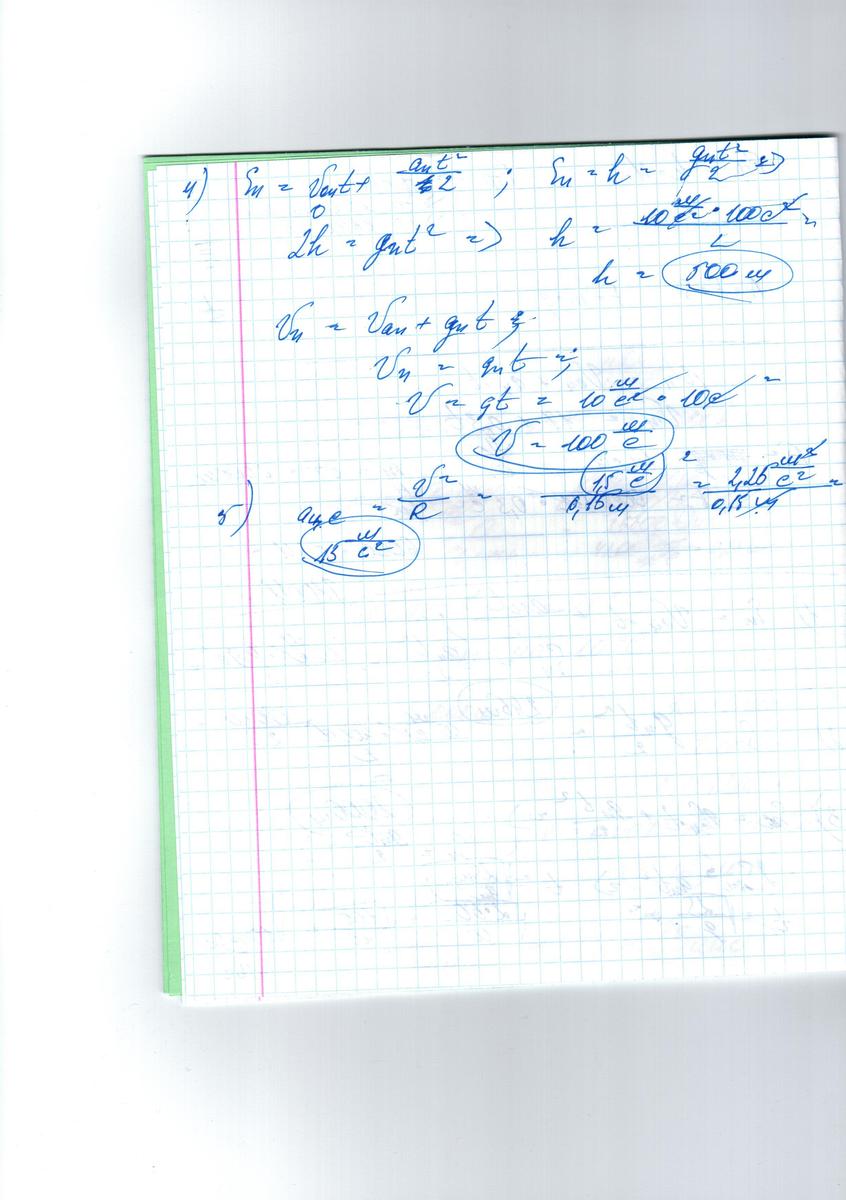 4) Sп = V₀пt + aпt²/2 ; Sп = h = gпt²/2 =>
0
2h = gпt² => h = 10 м/с² · 100с² / 2 =
h = 500 м
Vп = V₀п + gпt ;
Vп = gпt ;
V = gt = 10 м/с² · 10с =
V = 100 м/с
5) aц.с = V²/R = (1,5 м/с)² / 0,15м = 2,25 м²/с² / 0,15 м =
15 м/с²